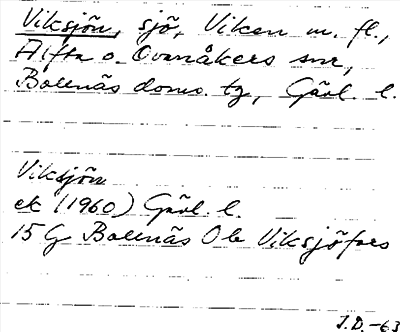 Viksjön, sjö, Viken m. fl.,
Alfta o. Ovanåkers snr,
Bollnäs doms. tg, Gävl. l.
Viksjön
ek (1960) Gävl. l.
15 G Bollnäs Ob Viksjöfors
J.D.-63